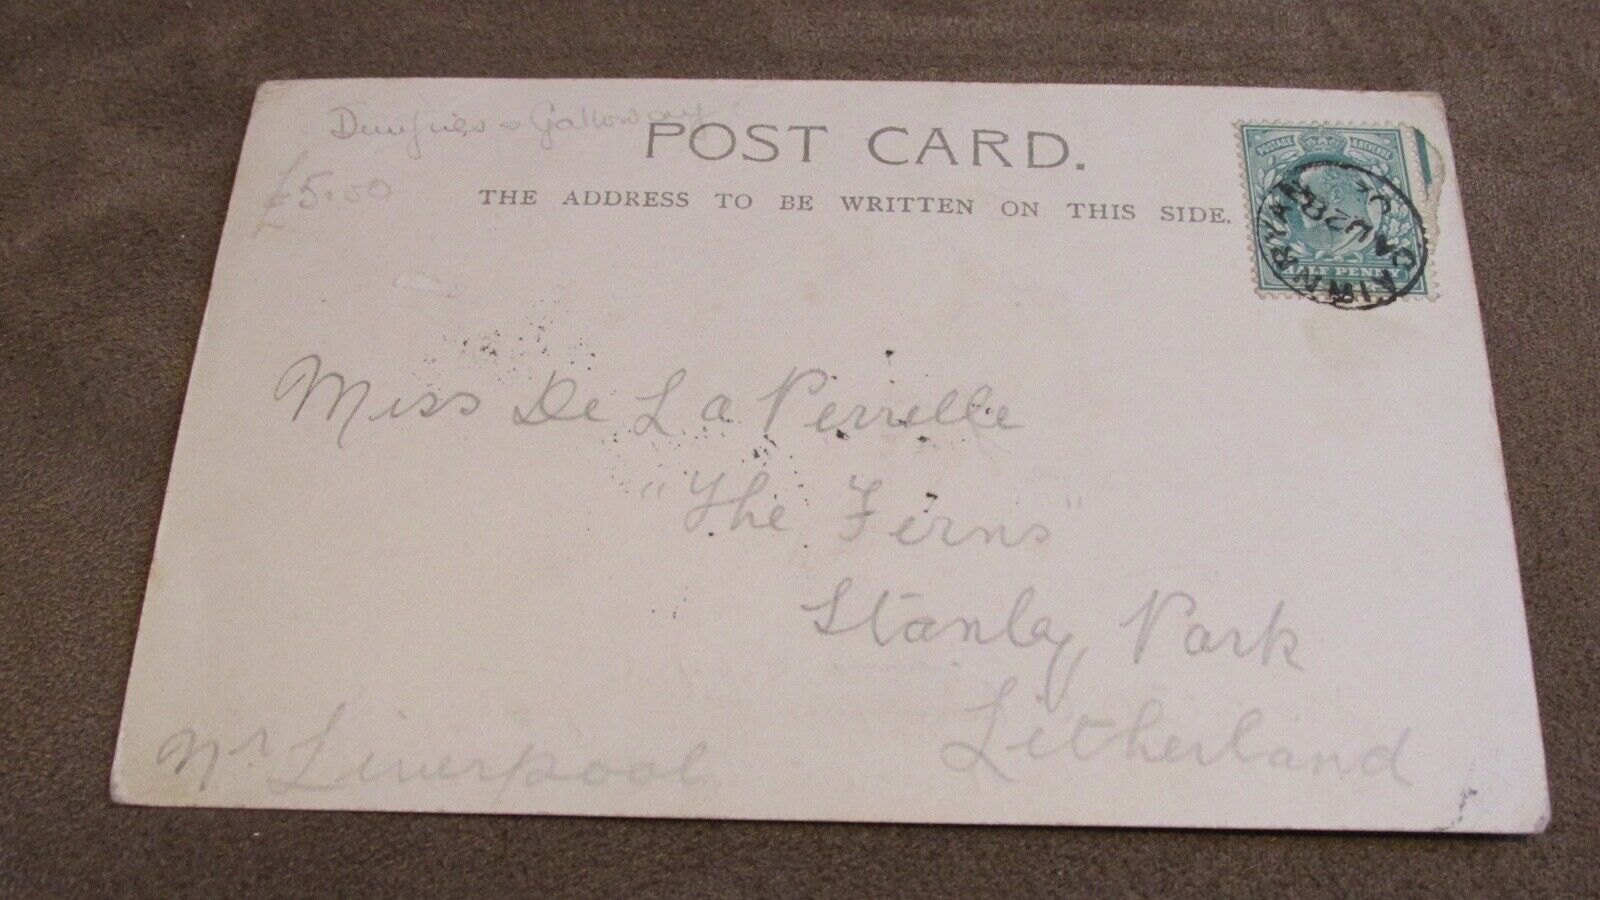 Dumfries & Galloway
£5.00
POST CARD.
THE ADDRESS TO BE WRITTEN ON THIS SIDE.
POSTAGE & REVENUE
HALF PENNY
KIRN RYAN
AU 28
Miss De La Perrelle
"The Ferns"
Stanley Park
Litherland
Nr Liverpool